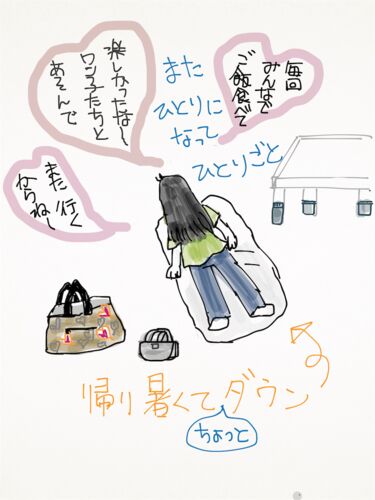 毎回
みんなで
ご飯食べて
楽しかったな〜
ワン子たちと
あそんで
また
ひとりに
なって
ひとりごと
また行く
からね〜
帰り暑くてダウン
ちょっと